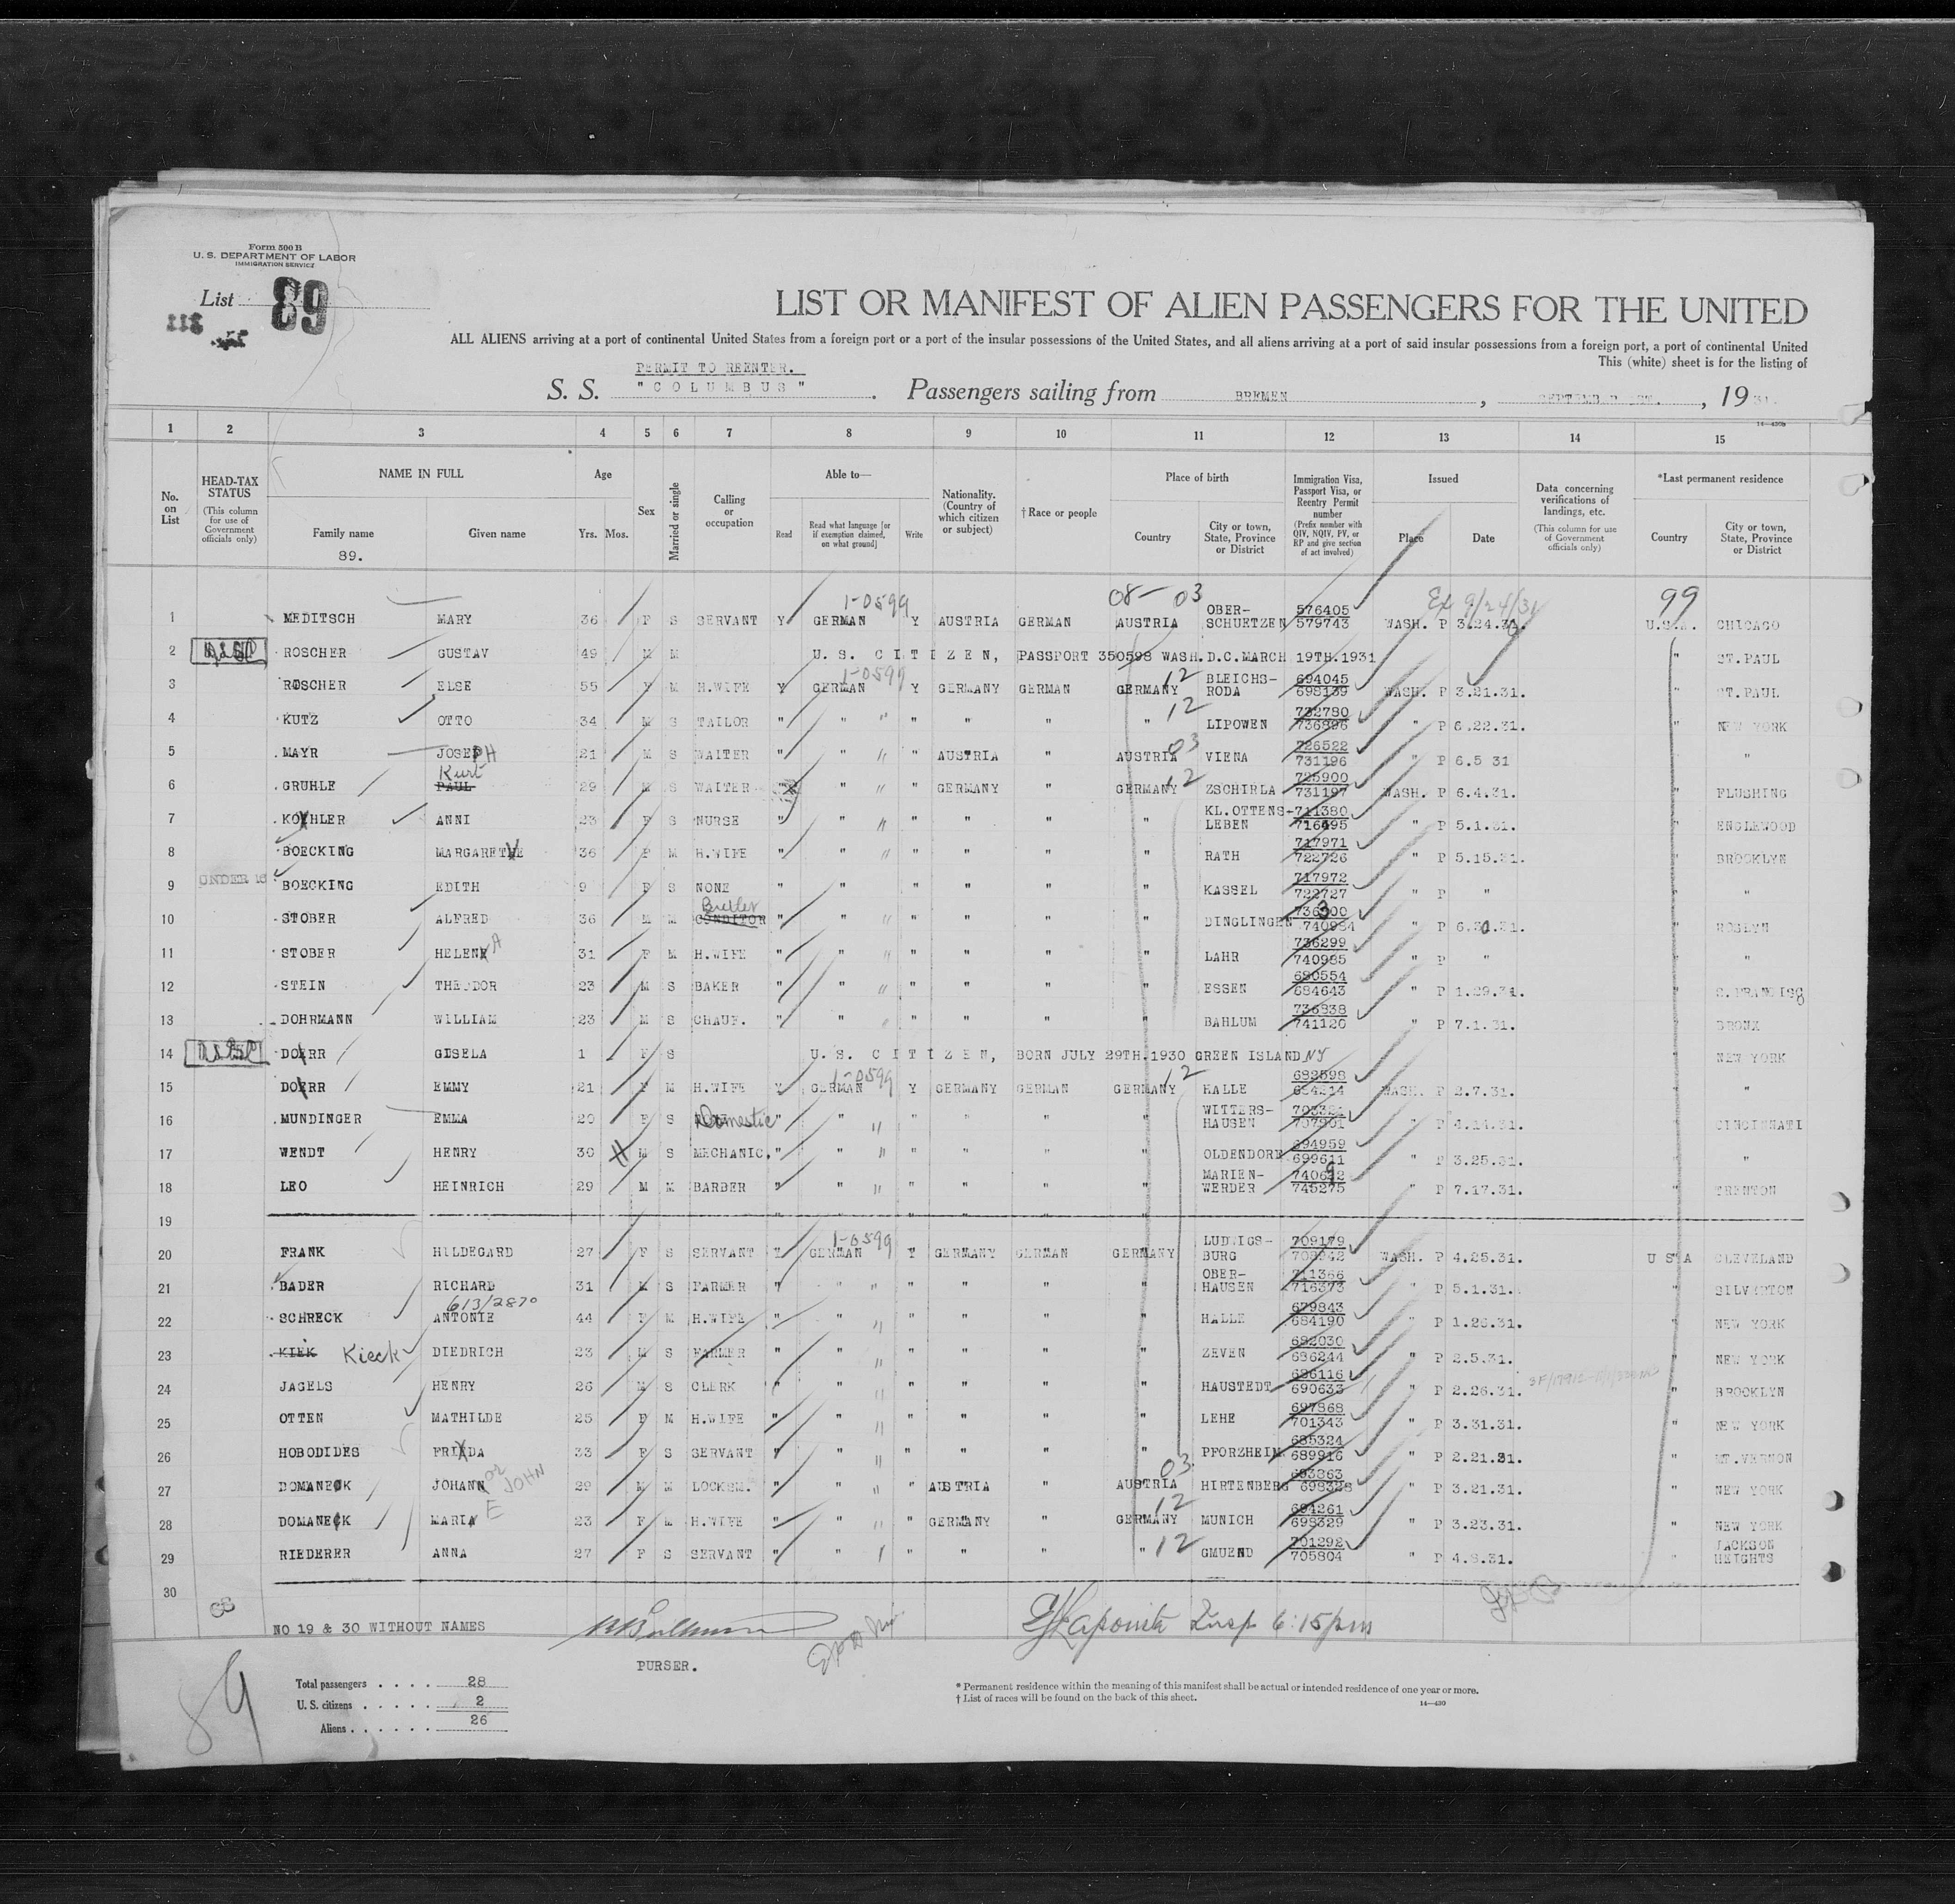 Form 500 B
U. S. DEPARTMENT OF LABOR
IMMIGRATION SERVICE
List 89
LIST OR MANIFEST OF ALIEN PASSENGERS FOR THE UNITED
ALL ALIENS arriving at a port of continental United States from a foreign port or a port of the insular possessions of the United States, and all aliens arriving at a port of said insular possessions from a foreign port, a port of continental United
This (white) sheet is for the listing of
PERMIT TO REENTER.
S. S. "COLUMBUS". Passengers sailing from BREMEN, SEPTEMBER, 1931.
14—430
1 2 3 4 5 6 7 8 9 10 11 12 13 14 15
No. on List
HEAD-TAX STATUS (This column for use of Government officials only)
NAME IN FULL Family name Given name
89.
Age Yrs. Mos.
Sex
Married or single
Calling or occupation
Able to— Read Read what language [or if exemption claimed, on what ground] Write
Nationality. (Country of which citizen or subject)
† Race or people
Place of birth Country City or town, State, Province or District
Immigration Visa, Passport Visa, or Reentry Permit number (Prefix number with QIV, NQIV, PV, or RP and give section of act involved)
Issued Place Date
Data concerning verifications of landings, etc. (This column for use of Government officials only)
*Last permanent residence Country City or town, State, Province or District
1-0599 08-03 Ex 9/24/31 99
1 MEDITSCH MARY 36 F S SERVANT Y GERMAN Y AUSTRIA GERMAN AUSTRIA OBER-SCHUETZEN 576405 579743 WASH. P 3.24.31. U.S.A. CHICAGO
2 ROSCHER GUSTAV 49 M M U. S. CITIZEN, PASSPORT 350598 WASH.D.C.MARCH 19TH.1931 " ST.PAUL
1-0599 12
3 ROSCHER ELSE 55 F M H.WIFE Y GERMAN Y GERMANY GERMAN GERMANY BLEICHS-RODA 694045 698139 WASH. P 3.21.31. " ST.PAUL
12
4 KUTZ OTTO 34 M S TAILOR " " " " " " LIPOWEN 732780 736896 " P 6.22.31. " NEW YORK
03
5 MAYR JOSEPH 21 M S WAITER " " " AUSTRIA " AUSTRIA VIENA 726522 731196 " P 6.5 31 " "
Kurt 12
6 GRUHLE PAUL 29 M S WAITER " " " GERMANY " GERMANY ZSCHIRLA 725900 731197 WASH. P 6.4.31. " FLUSHING
7 KOEHLER ANNI 23 F S NURSE " " " " " " KL.OTTENS-LEBEN 711380 716495 " P 5.1.31. " ENGLEWOOD
8 BOECKING MARGARETHE 36 F M H.WIFE " " " " " " RATH 717971 722726 " P 5.15.31. " BROOKLYN
UNDER 16
9 BOECKING EDITH 9 F S NONE " " " " " " KASSEL 717972 722727 " P " " "
Butler
10 STOBER ALFRED 36 M M CONDITOR " " " " " " DINGLINGEN 736300 740984 " P 6.30.31. " ROSLYN
11 STOBER HELENE A 31 F M H.WIFE " " " " " " LAHR 736299 740985 " P " " "
12 STEIN THEODOR 23 M S BAKER " " " " " " ESSEN 680554 684643 " P 1.29.31. " S.FRANCISCO
13 DOHRMANN WILLIAM 23 M S CHAUF. " " " " " " BAHLUM 736838 741120 " P 7.1.31. " BRONX
14 DOERR GISELA 1 F S U. S. CITIZEN, BORN JULY 29TH.1930 GREEN ISLAND NY " NEW YORK
1-0599 12
15 DOERR EMMY 21 F M H.WIFE Y GERMAN Y GERMANY GERMAN GERMANY HALLE 682598 WASH. P 2.7.31. " "
16 MUNDINGER EMMA 20 F S Domestic " " " " " " WITTERS-HAUSEN " P 4.14.31. " CINCINNATI
17 WENDT HENRY 30 M S MECHANIC. " " " " " " OLDENDORF 694959 699611 " P 3.25.31. " "
18 LEO HEINRICH 29 M M BARBER " " " " " " MARIEN-WERDER 745275 " P 7.17.31. " TRENTON
19 " " " " "
1-0599
20 FRANK HILDEGARD 27 F S SERVANT Y GERMAN Y GERMANY GERMAN GERMANY LUDWIGS-BURG 709179 WASH. P 4.25.31. U S A CLEVELAND
21 BADER RICHARD 31 M S FARMER " " " " " " OBER-HAUSEN 711366 716373 " P 5.1.31. " SILVERTON
613/2870
22 SCHRECK ANTONIE 44 F M H.WIFE " " " " " " HALLE 679843 684190 " P 1.26.31. " NEW YORK
23 KIEK Kieck DIEDRICH 23 M S FARMER " " " " " " ZEVEN 682030 686244 " P 2.5.31. " NEW YORK
24 JAGELS HENRY 26 M S CLERK " " " " " " HAUSTEDT 686116 690633 " P 2.26.31. " BROOKLYN
25 OTTEN MATHILDE 25 F M H.WIFE " " " " " " LEHE 697868 701343 " P 3.31.31. " NEW YORK
26 HOBODIDES FRIEDA 33 F S SERVANT " " " " " " PFORZHEIM 685324 689916 " P 2.21.31. " MT.VERNON
03
27 DOMANECK JOHANN or JOHN 29 M M LOCKSM. " " " AUSTRIA " AUSTRIA HIRTENBERG 693863 698328 " P 3.21.31. " NEW YORK
12
28 DOMANECK MARIA E 23 F M H.WIFE " " " GERMANY " GERMANY MUNICH 694261 698329 " P 3.23.31. " NEW YORK
29 RIEDERER ANNA 27 F S SERVANT " " " " " " 12 GMUEND 701292 705804 " P 4.8.31. " JACKSON HEIGHTS
30
NO 19 & 30 WITHOUT NAMES
Insp 6:15pm
PURSER.
89
Total passengers . . . . 28
U. S. citizens . . . . . 2
Aliens . . . . . . 26
* Permanent residence within the meaning of this manifest shall be actual or intended residence of one year or more.
† List of races will be found on the back of this sheet.
14—430